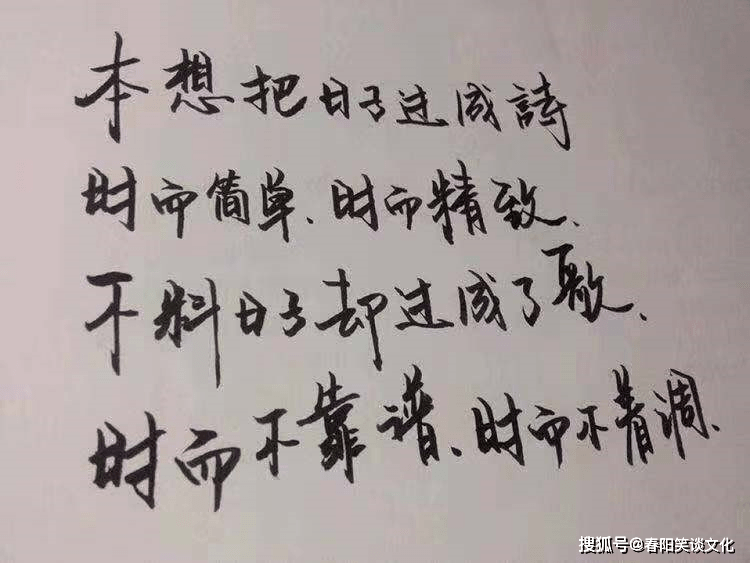 本想把日子过成詩
时而简单、时而精致、
不料日子却过成了歌、
时而不靠谱、时而不着调、
搜狐号@春阳笑谈文化